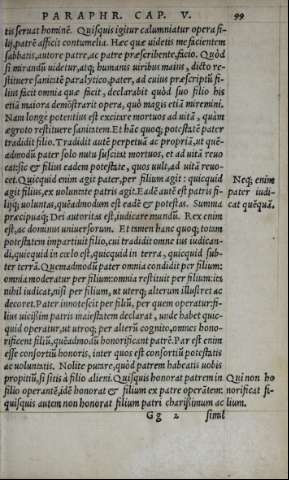 PARAPHR. CAP. V. 99
tis seruat hominē. Quisquis igitur calumniatur opera fi-
lij, patrē afficit contumelia. Hæc quæ uidetis me facientem
sabbatis, autore patre, ac patre præscribente, facio. Quòd
si mirandū uidetur, atq; humanis uiribus maius, dicto re-
stituere sanitatē paralytico, pater, ad cuius præscriptū fi-
lius facit omnia quæ facit, declarabit quòd suo filio his
etiā maiora demōstrarit opera, quò magis etiā miremini.
Nam longe potentius est excitare mortuos ad uitā, quàm
ægroto restituere sanitatem. Et hāc quoq; potestatē pater
tradidit filio. Tradidit autē perpetuā ac propriā, ut quē-
admodū pater solo nutu suscitat mortuos, et ad uitā reuo
cat: sic & filius eadem potestate, quos uult, ad uitā reuo-
cet. Quicquid enim agit pater, per filium agit: quicquid
agit filius, ex uolūtate patris agit. Eadē autē est patris fi-
lijq; uoluntas, quēadmodum est eadē & potestas. Summa
præcipuaq; Dei autoritas est, iudicare mundū. Rex enim
est, ac dominus uniuersorum. Et tamen hanc quoq; totam
potestatem impartiuit filio, cui tradidit omne ius iudican-
di, quicquid in cœlo est, quicquid in terra, quicquid sub-
ter terrā. Quemadmodū pater omnia condidit per filium:
omnia moderatur per filium: omnia restituit per filium: ita
nihil iudicat, nisi per filium, ut uterq; alterum illustret ac
decoret. Pater innotescit per filiū, per quem operatur: fi-
lius uicissim patris maiestatem declarat, unde habet quic-
quid operatur, ut utroq; per alterū cognito, omnes hono-
rificent filiū, quēadmodū honorificant patrē. Par est enim
esse consortiū honoris, inter quos est consortiū potestatis
ac uoluntatis. Nolite putare, quòd patrem habeatis uobis
propitiū, si sitis à filio alieni. Quisquis honorat patrem in
filio operantē, idē honorat & filium ex patre operātem:
quisquis autem non honorat filium patri charissimum ac
Gg 2 simil
Neq; enim
pater iudi-
cat quēquā.
Qui non ho
norificat fi-
lium.